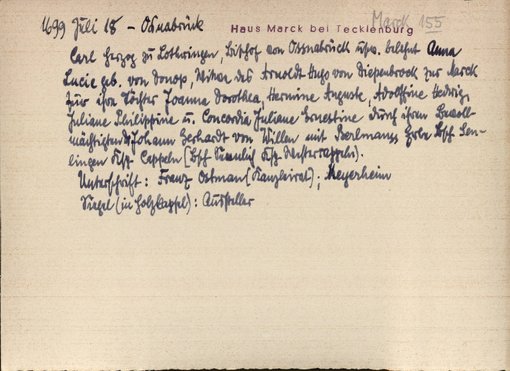 1699 Juli 18 - Osnabrück
Haus Marck bei Tecklenburg
Marck 155
Carl Herzog zu Lothringen, Bischof von Ossnabrück usw. belehnt Anna
Lucie geb. von Donop, Witwe des Arnoldt Hugo von Diepenbroock zur Marck
für ihre Töchter Joanna Dorothea, Hermine Auguste, Adolffine Hedwig,
Juliane Philippine u. Concordia Juliane Ernestine durch ihren Bevoll-
mächtigten Johann Gerhardt von Willen mit Berlmanns Erbe Bsch. Sen-
lingen Ksp. Cappeln (Bsch. Ksp. Westercappeln).
Unterschrift: Franz Ostman (Kanzleirat); Meyerheim
Siegel (in Holzkapsel): Aussteller